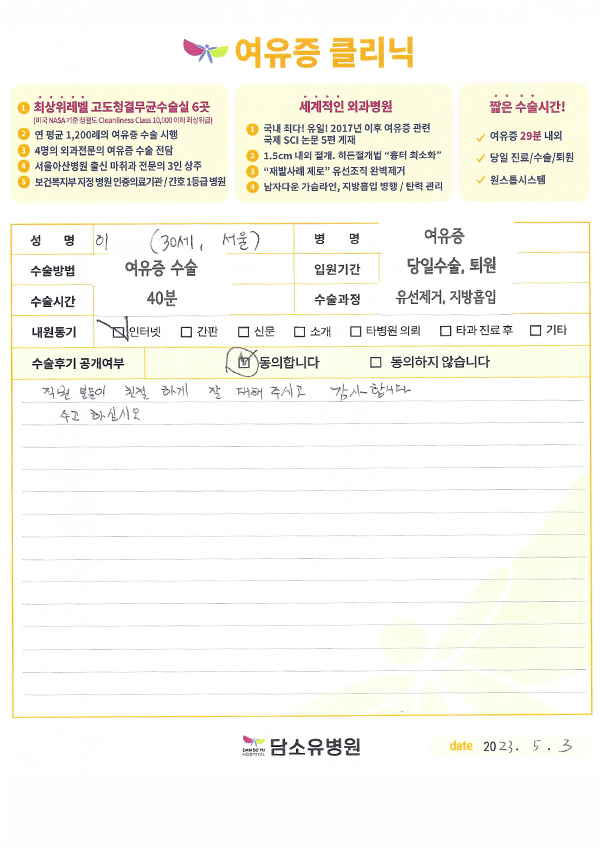 여유증 클리닉
1 최상위레벨 고도청결무균수술실 6곳
(미국 NASA 기준 청결도 Cleanliness Class 10,000 이하 최상위급)
2 연 평균 1,200례의 여유증 수술 시행
3 4명의 외과전문의 여유증 수술 전담
4 서울아산병원 출신 마취과 전문의 3인 상주
5 보건복지부 지정 병원 인증의료기관 / 간호 1등급 병원
세계적인 외과병원
1 국내 최다! 유일! 2017년 이후 여유증 관련
국제 SCI 논문 5편 게재
2 1.5cm 내외 절개. 히든절개법 “흉터 최소화”
3 “재발사례 제로” 유선조직 완벽제거
4 남자다운 가슴라인, 지방흡입 병행 / 탄력 관리
짧은 수술시간!
여유증 29분 내외
당일 진료/수술/퇴원
원스톱시스템
성 명 이 (30세, 서울) 병 명 여유증
수술방법 여유증 수술 입원기간 당일수술, 퇴원
수술시간 40분 수술과정 유선제거, 지방흡입
내원동기 인터넷 간판 신문 소개 타병원 의뢰 타과 진료 후 기타
수술후기 공개여부 동의합니다 동의하지 않습니다
직원 분들이 친절 하게 잘 대해 주시고 감사합니다
수고 하십시오
DAMSOYU HOSPITAL 담소유병원
date 2023. 5. 3